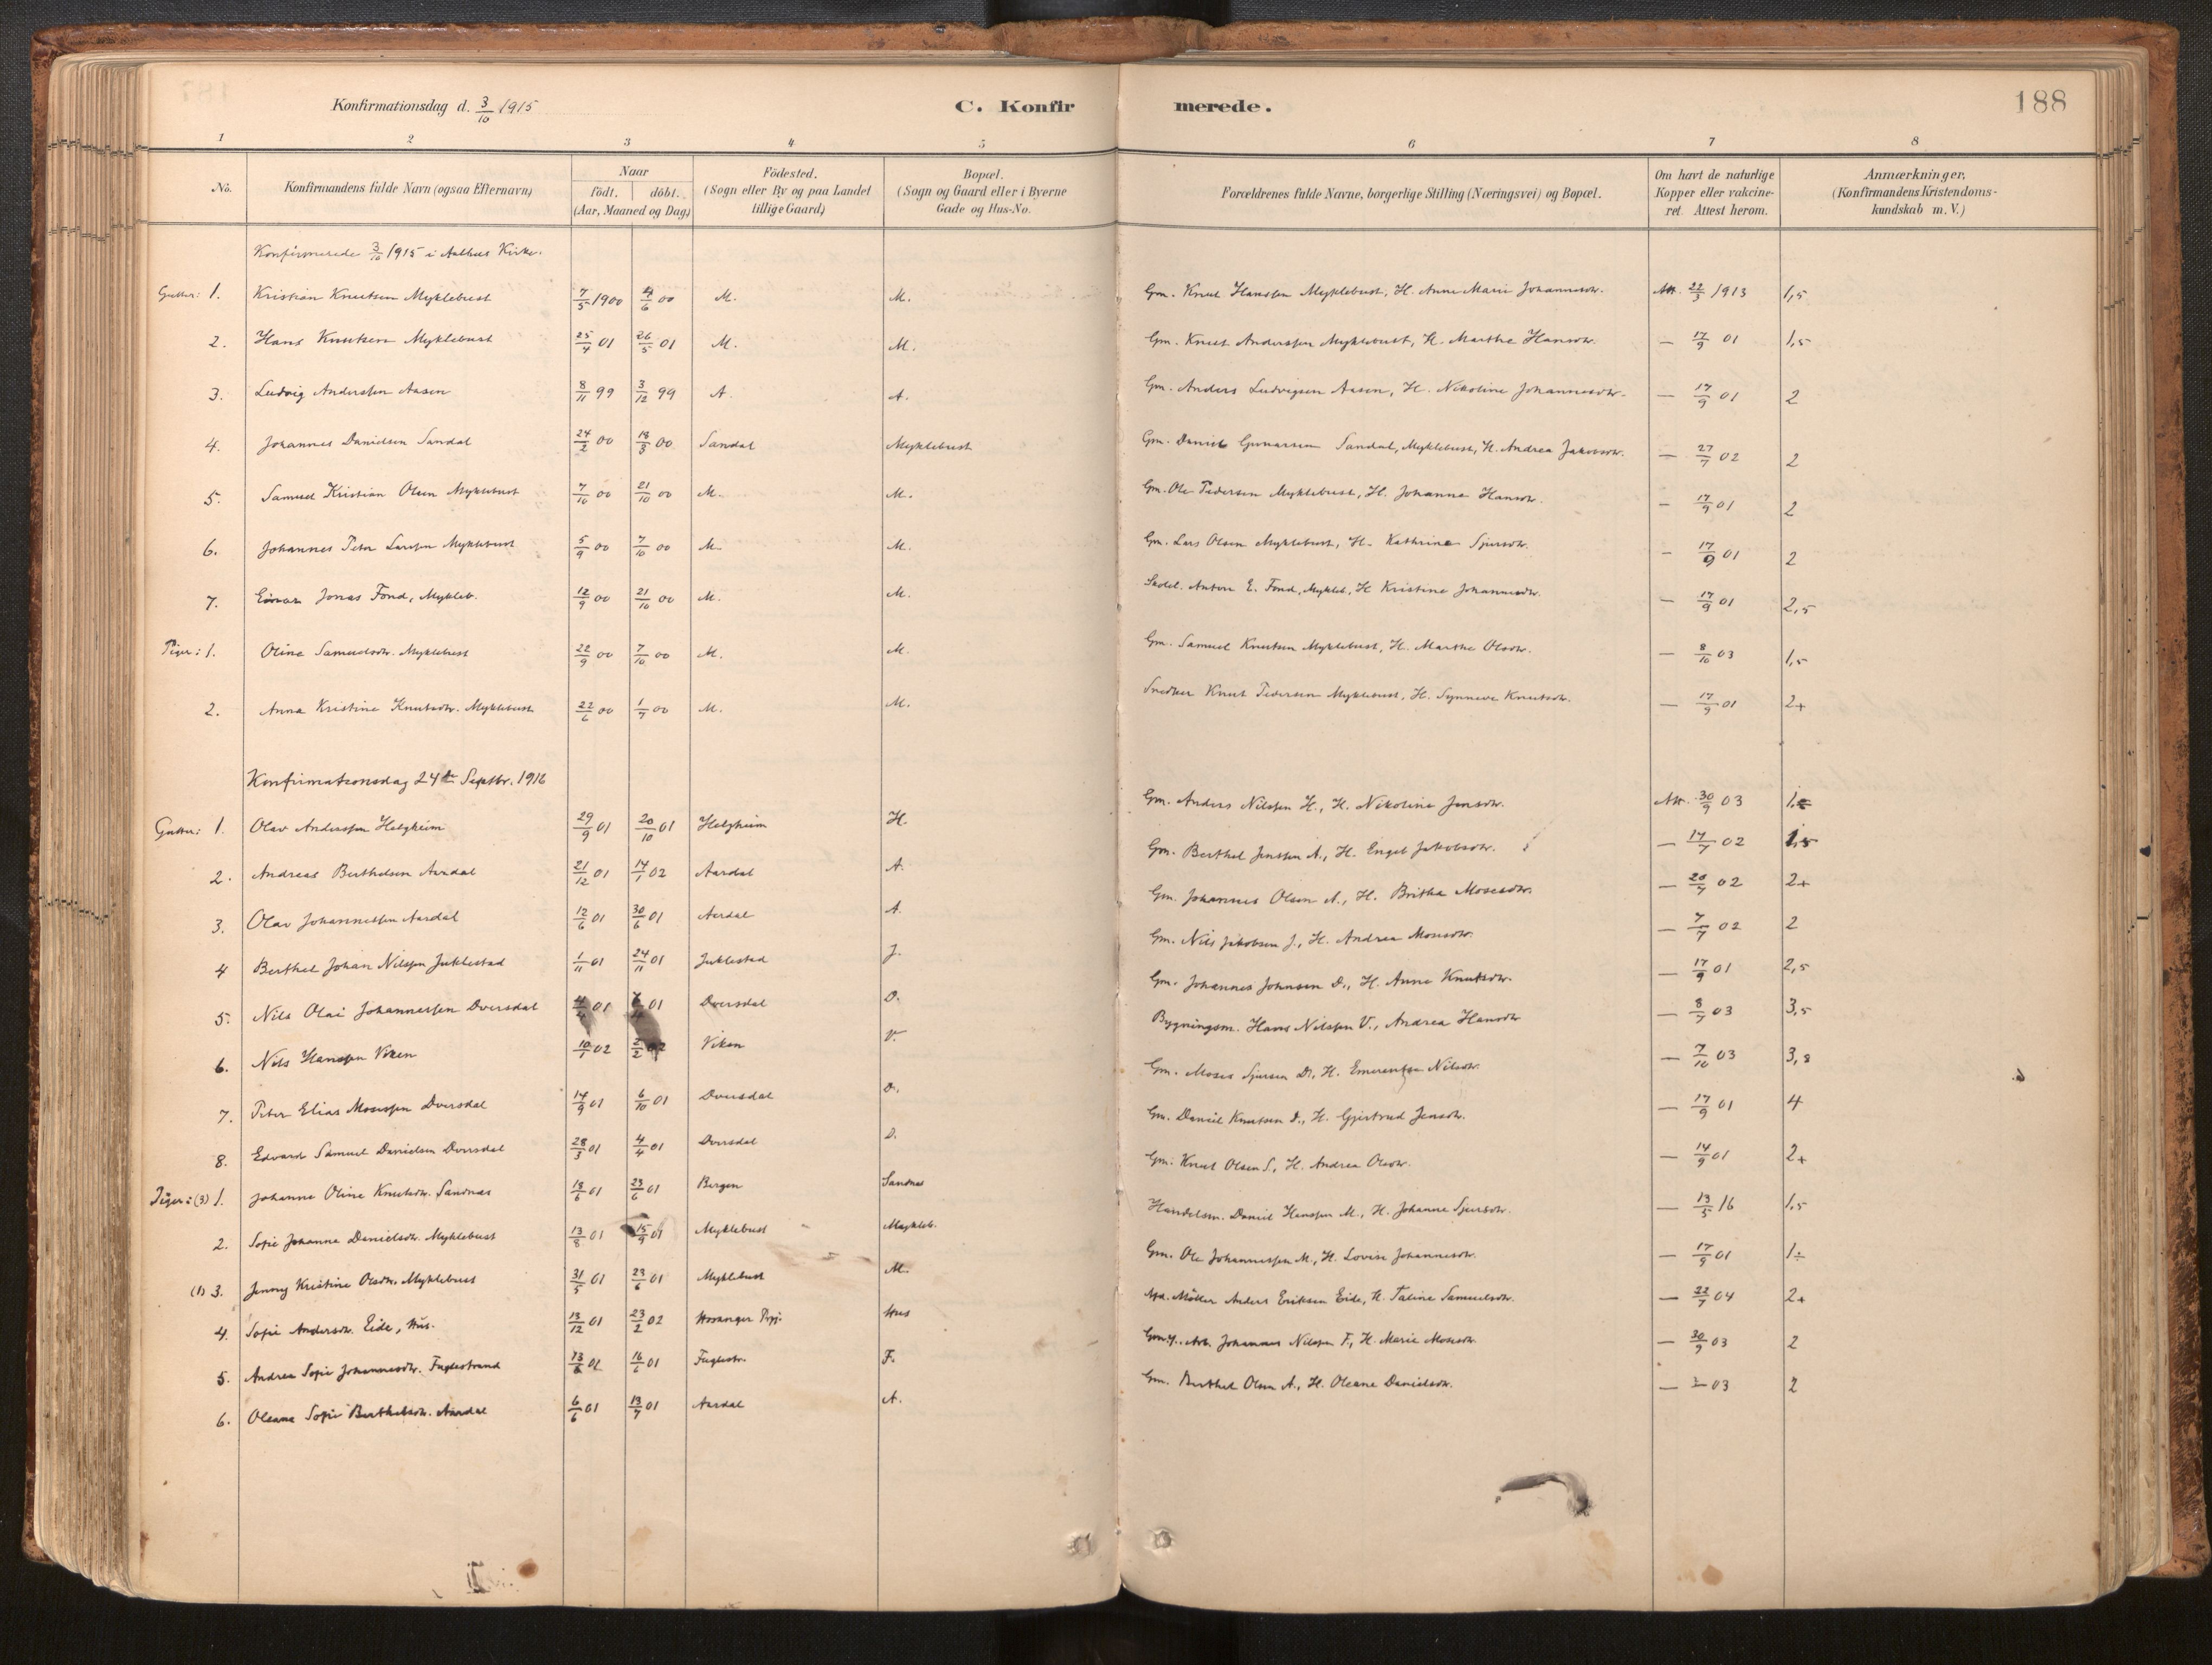 Konfirmationsdag d. 3/10 1915 C. Konfirmerede. 188
1 2 3 4 5 6 7 8
No. Konfirmandens fulde Navn (ogsaa Efternavn) Naar födt. döbt. (Aar, Maaned og Dag) Födested. (Sogn eller By og paa Landet tillige Gaard) Bopæl. (Sogn og Gaard eller i Byerne Gade og Hus-No. Forældrenes fulde Navne, borgerlige Stilling (Næringsvei) og Bopæl. Om havt de naturlige Kopper eller vakcineret. Attest herom. Anmærkninger, (Konfirmandens Kristendomskundskab m. V.)
Konfirmerede 3/10 1915 i Aalhus Kirke.
Gutter: 1. Kristian Knutsen Myklebust 7/5 1900 4/6 00 M. M. Gm. Knut Hanssen Myklebust, H. Anne Marie Johannesdtr. Att. 22/3 1913 1,5
2. Hans Knutsen Myklebust 25/4 01 26/5 01 M. M. Gm. Knut Anderssen Myklebust, H. Marthe Hansdtr. — 17/9 01 1,5
3. Ludvig Anderssen Aasen 8/11 99 3/12 99 A. A. Gm. Anders Ludvigsen Aasen, H. Nikoline Johannesdtr. — 17/9 01 2
4. Johannes Danielsen Sandal 24/2 00 18/3 00 Sandal Myklebust Gm. Daniel Gunnarsen Sandal, Myklebust, H. Andrea Jakobsdtr. — 27/7 02 2
5. Samuel Kristian Olsen Myklebust 7/10 00 21/10 00 M. M. Gm. Ole Pedersen Myklebust, H. Johanna Hansdtr. — 17/9 01 2
6. Johannes Peter Larssen Myklebust 5/9 00 7/10 00 M. M. Gm. Lars Olsen Myklebust, H. Kathrine Sjursdtr. — 17/9 01 2
7. Einar Jonas Fond, Mykleb. 12/9 00 21/10 00 M. M. Skolel. Anton E. Fond, Mykleb, H Kristine Johannesdtr. — 17/9 01 2,5
Piger: 1. Oline Samuelsdtr. Myklebust 22/9 00 7/10 00 M. M. Gm. Samuel Knutsen Myklebust, H. Marthe Olsdtr. — 8/10 03 1,5
2. Anna Kristine Knutsdtr. Myklebust 22/6 00 1/7 00 M. M. Snedker Knut Pedersen Myklebust, H. Synneve Knutsdtr. — 17/9 01 2+
Konfirmationsdag 24de Septbr. 1916
Gutter: 1. Olav Anderssen Helgheim 29/9 01 20/10 01 Helgheim H. Gm. Anders Nilssen H., H. Nikoline Jensdtr. Att. 30/9 03
2. Andreas Berthelsen Aardal 21/12 01 14/1 02 Aardal A. Gm. Berthel Jenssen A., H. Engel Jakobsdtr. — 17/7 02 1,5
3. Olav Johannessen Aardal 12/6 01 30/6 01 Aardal A. Gm. Johannes Olsen A., H. Britha Mosesdtr. — 20/7 02 2+
4 Berthel Johan Nilssen Juklestad 1/11 01 24/11 01 Juklestad J. Gm. Nils Jakobsen J., H. Andrea Mosesdtr. — 7/7 02 2
5. Nils Olai Johannessen Dversdal 01 01 Dversdal D. Gm. Johannes Johnsen D., H. Anne Knutsdtr. — 17/9 01 2,5
6. Nils Hanssen Viken 10/1 02 Viken V. Bygningsm. Hans Nilssen V., Andrea Hansdtr — 8/7 03 3,5
7. Peter Elias Mosessen Dversdal 14/9 01 6/10 01 Dversdal D. Gm. Moses Sjursen D., H. Emerentse Nilsdtr. — 7/10 03 3,8
8. Edvard Samuel Danielsen Dversdal 28/3 01 4/4 01 Dversdal D. Gm. Daniel Knutsen D., H. Gjertrud Jensdtr. — 17/9 01 4
Piger: (3) 1. Johanna Oline Knutsdtr. Sandnæs 13/6 01 23/6 01 Bergen Sandnæs Gm. Knut Olsen S., H. Andrea Olsdtr. — 14/9 01 2+
2. Sofie Johanna Danielsdtr. Myklebust 13/8 01 15/9 01 Myklebust Mykleb. Handelsm. Daniel Hanssen M., H. Johanne Sjursdtr. — 13/5 16 1,5
(1) 3. Jenny Kristine Olsdtr. Myklebust 31/5 01 23/6 01 Myklebust M. Gm. Ole Johannessen M., H. Lovise Johannesdtr. — 17/9 01 1÷
4. Sofie Andersdtr. Eide, Hus. 13/12 01 23/2 02 Hosanger Prgj. Hus Møller Anders Eriksen Eide, H. Taline Samuelsdtr. — 22/7 04 2+
5. Andrea Sofie Johannesdtr. Fuglestrand 01 16/6 01 Fuglestr. F. Arb. Johannes Nilssen F., H. Marie Mosesdtr. — 30/9 03 2
6. Oleana Sofie Berthelsdtr. Aardal 6/6 01 13/7 01 Aardal A. Gm. Berthel Olsen A., H. Oleane Danielsdtr. — 03 2